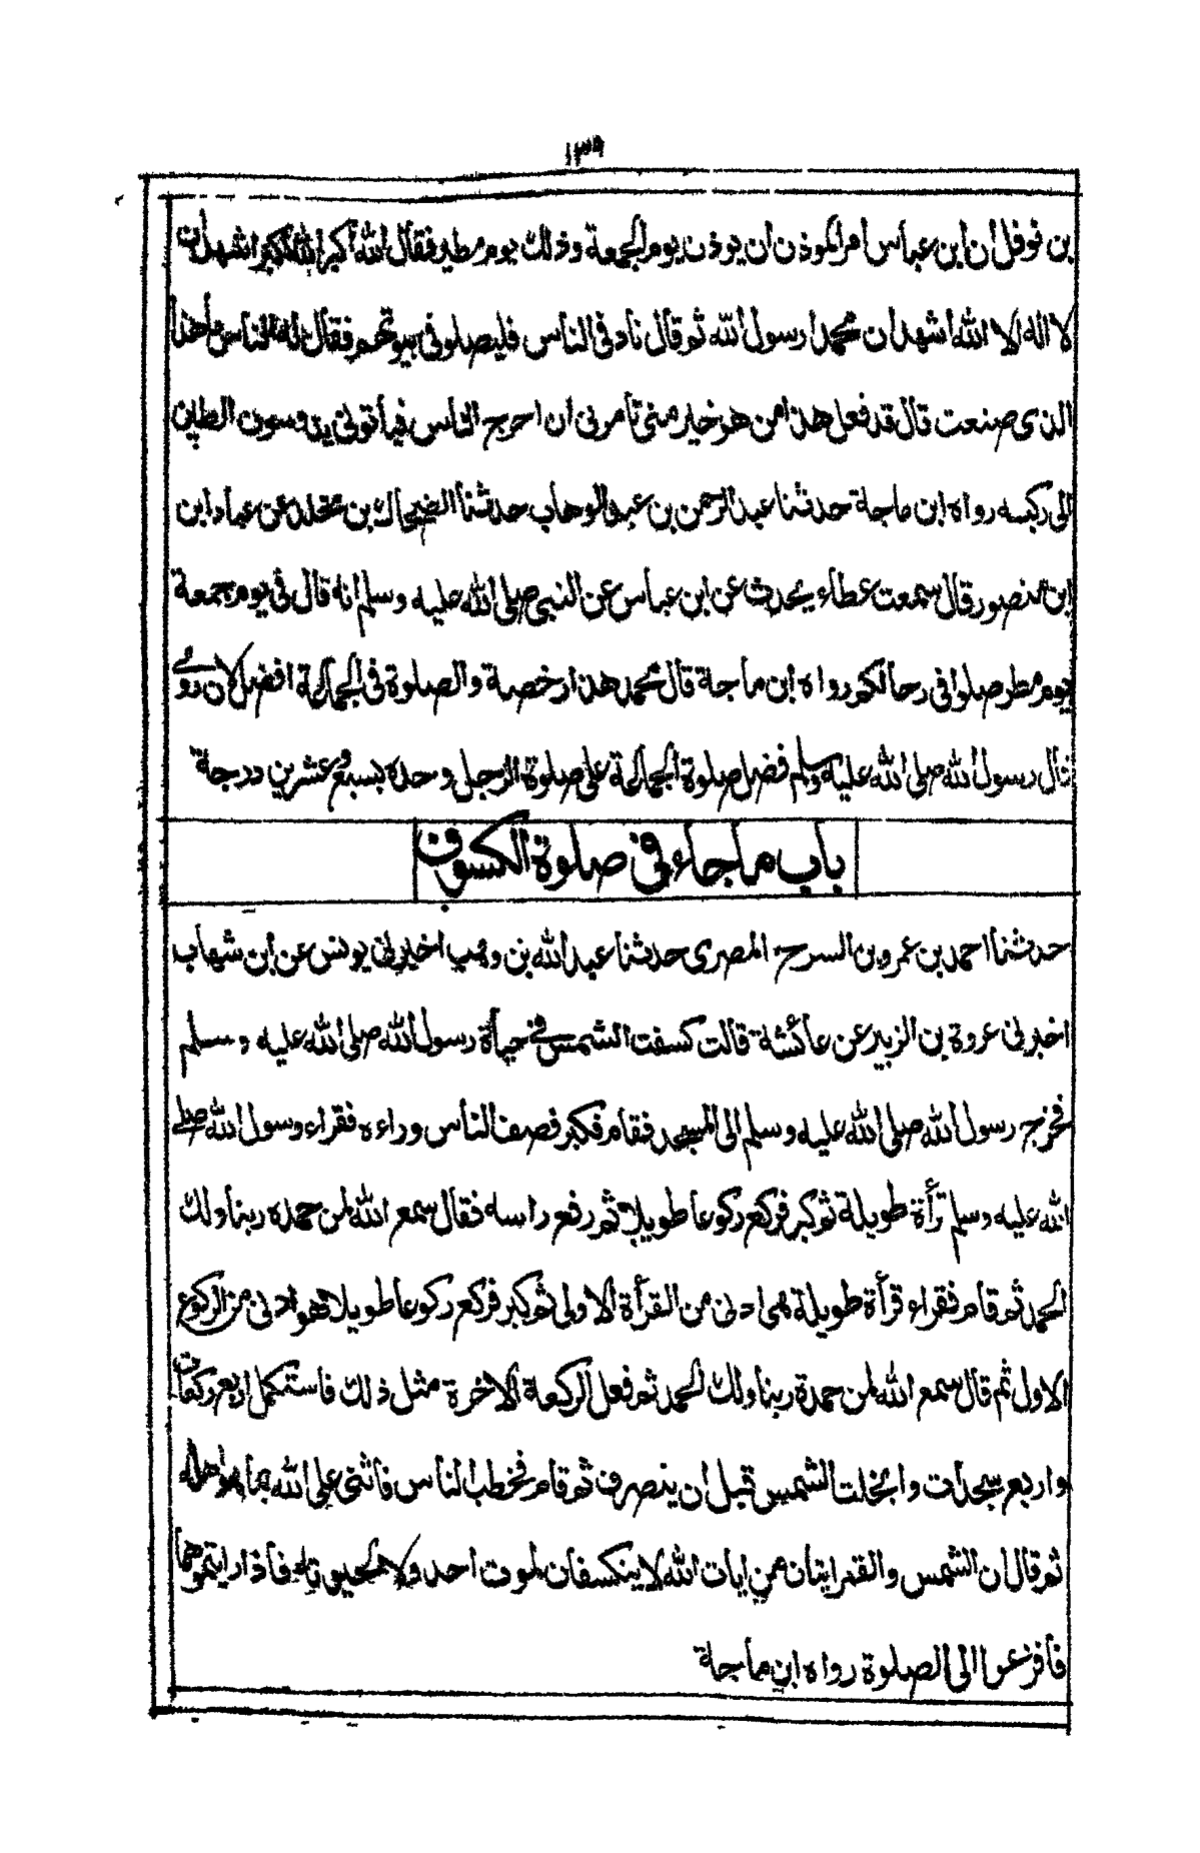 ١٣٩
بن نوفل ان ابن عباس امر المؤذن ان يوذن يوم الجمعة وذلك يوم مطير فقال الله اكبر الله اكبر اشهد ان
لا اله الا الله اشهد ان محمدا رسول الله ثم قال ناد فى الناس فليصلو فى بيوتهم فقال له الناس ما هذا
الذى صنعت قال قد فعل هذا من هو خير منى تامرنى ان احرج الناس فيأتونى يدوسون الطين
الى ركبهم رواه ابن ماجة حدثنا عبد الرحمن بن عبد الوهاب حدثنا الضحاك بن مخلد عن عباد ابن
ابن منصور قال سمعت عطاء يحدث عن ابن عباس عن النبى صلى الله عليه وسلم انه قال فى يوم جمعة
يوم مطر صلوا فى رحالكم رواه ابن ماجة قال محمد هذا رخصة والصلوة فى الجماعة افضل لان روى
قال رسول الله صلى الله عليه وسلم فضل صلوة الجماعة على صلوة الرجل وحده بسبع وعشرين درجة
باب ما جاء فى صلوة الكسوف
حدثنا احمد بن عمرو بن السرح المصرى حدثنا عبد الله بن وهب اخبرنى يونس عن ابن شهاب
اخبرنى عروة بن الزبير عن عائشة قالت كسفت الشمس فى حياة رسول الله صلى الله عليه وسلم
فخرج رسول الله صلى الله عليه وسلم الى المسجد فقام فكبر فصف الناس وراءه فقراء رسول الله صلى
الله عليه وسلم قرأة طويلة ثم كبر فركع ركوعا طويلا ثم رفع راسه فقال سمع الله لمن حمده ربنا ولك
الحمد ثم قام فقراء قرأة طويلة هى ادنى من القرأة الاولى ثم كبر فركع ركوعا طويلا هو ادنى من الركوع
الاول ثم قال سمع الله لمن حمدة ربنا ولك الحمد ثم فعل الركعة الاخرة مثل ذلك فاستكمل اربع ركعات
واربع سجدات وانجلت الشمس قبل ان ينصرف ثم قام فخطب الناس فاثنى على الله بما هو اهله
ثم قال ان الشمس والقمر ايتان من ايات الله لا ينكسفان لموت احد ولا لحيوته فاذا رايتموهما
فافزعوا الى الصلوة رواه ابن ماجة